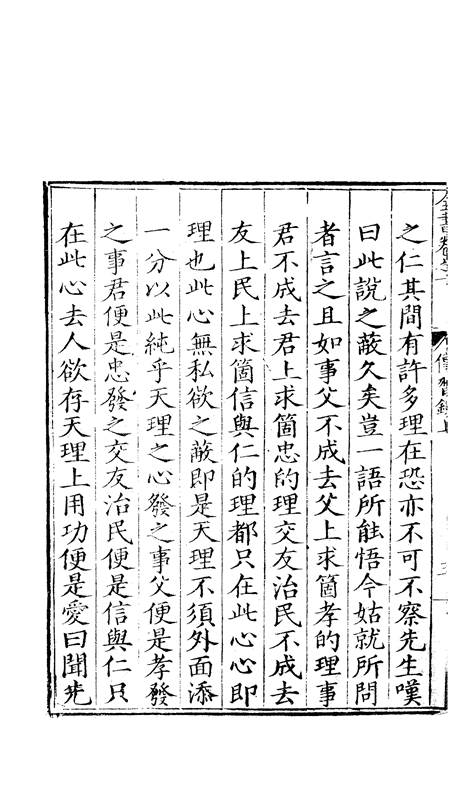 之仁其間有許多理在恐亦不可不察先生嘆
曰此說之蔽久矣豈一語所能悟今姑就所問
者言之且如事父不成去父上求箇孝的理事
君不成去君上求箇忠的理交友治民不成去
友上民上求箇信與仁的理都只在此心心即
理也此心無私欲之蔽即是天理不須外面添
一分以此純乎天理之心發之事父便是孝發
之事君便是忠發之交友治民便是信與仁只
在此心去人欲存天理上用功便是愛曰聞先